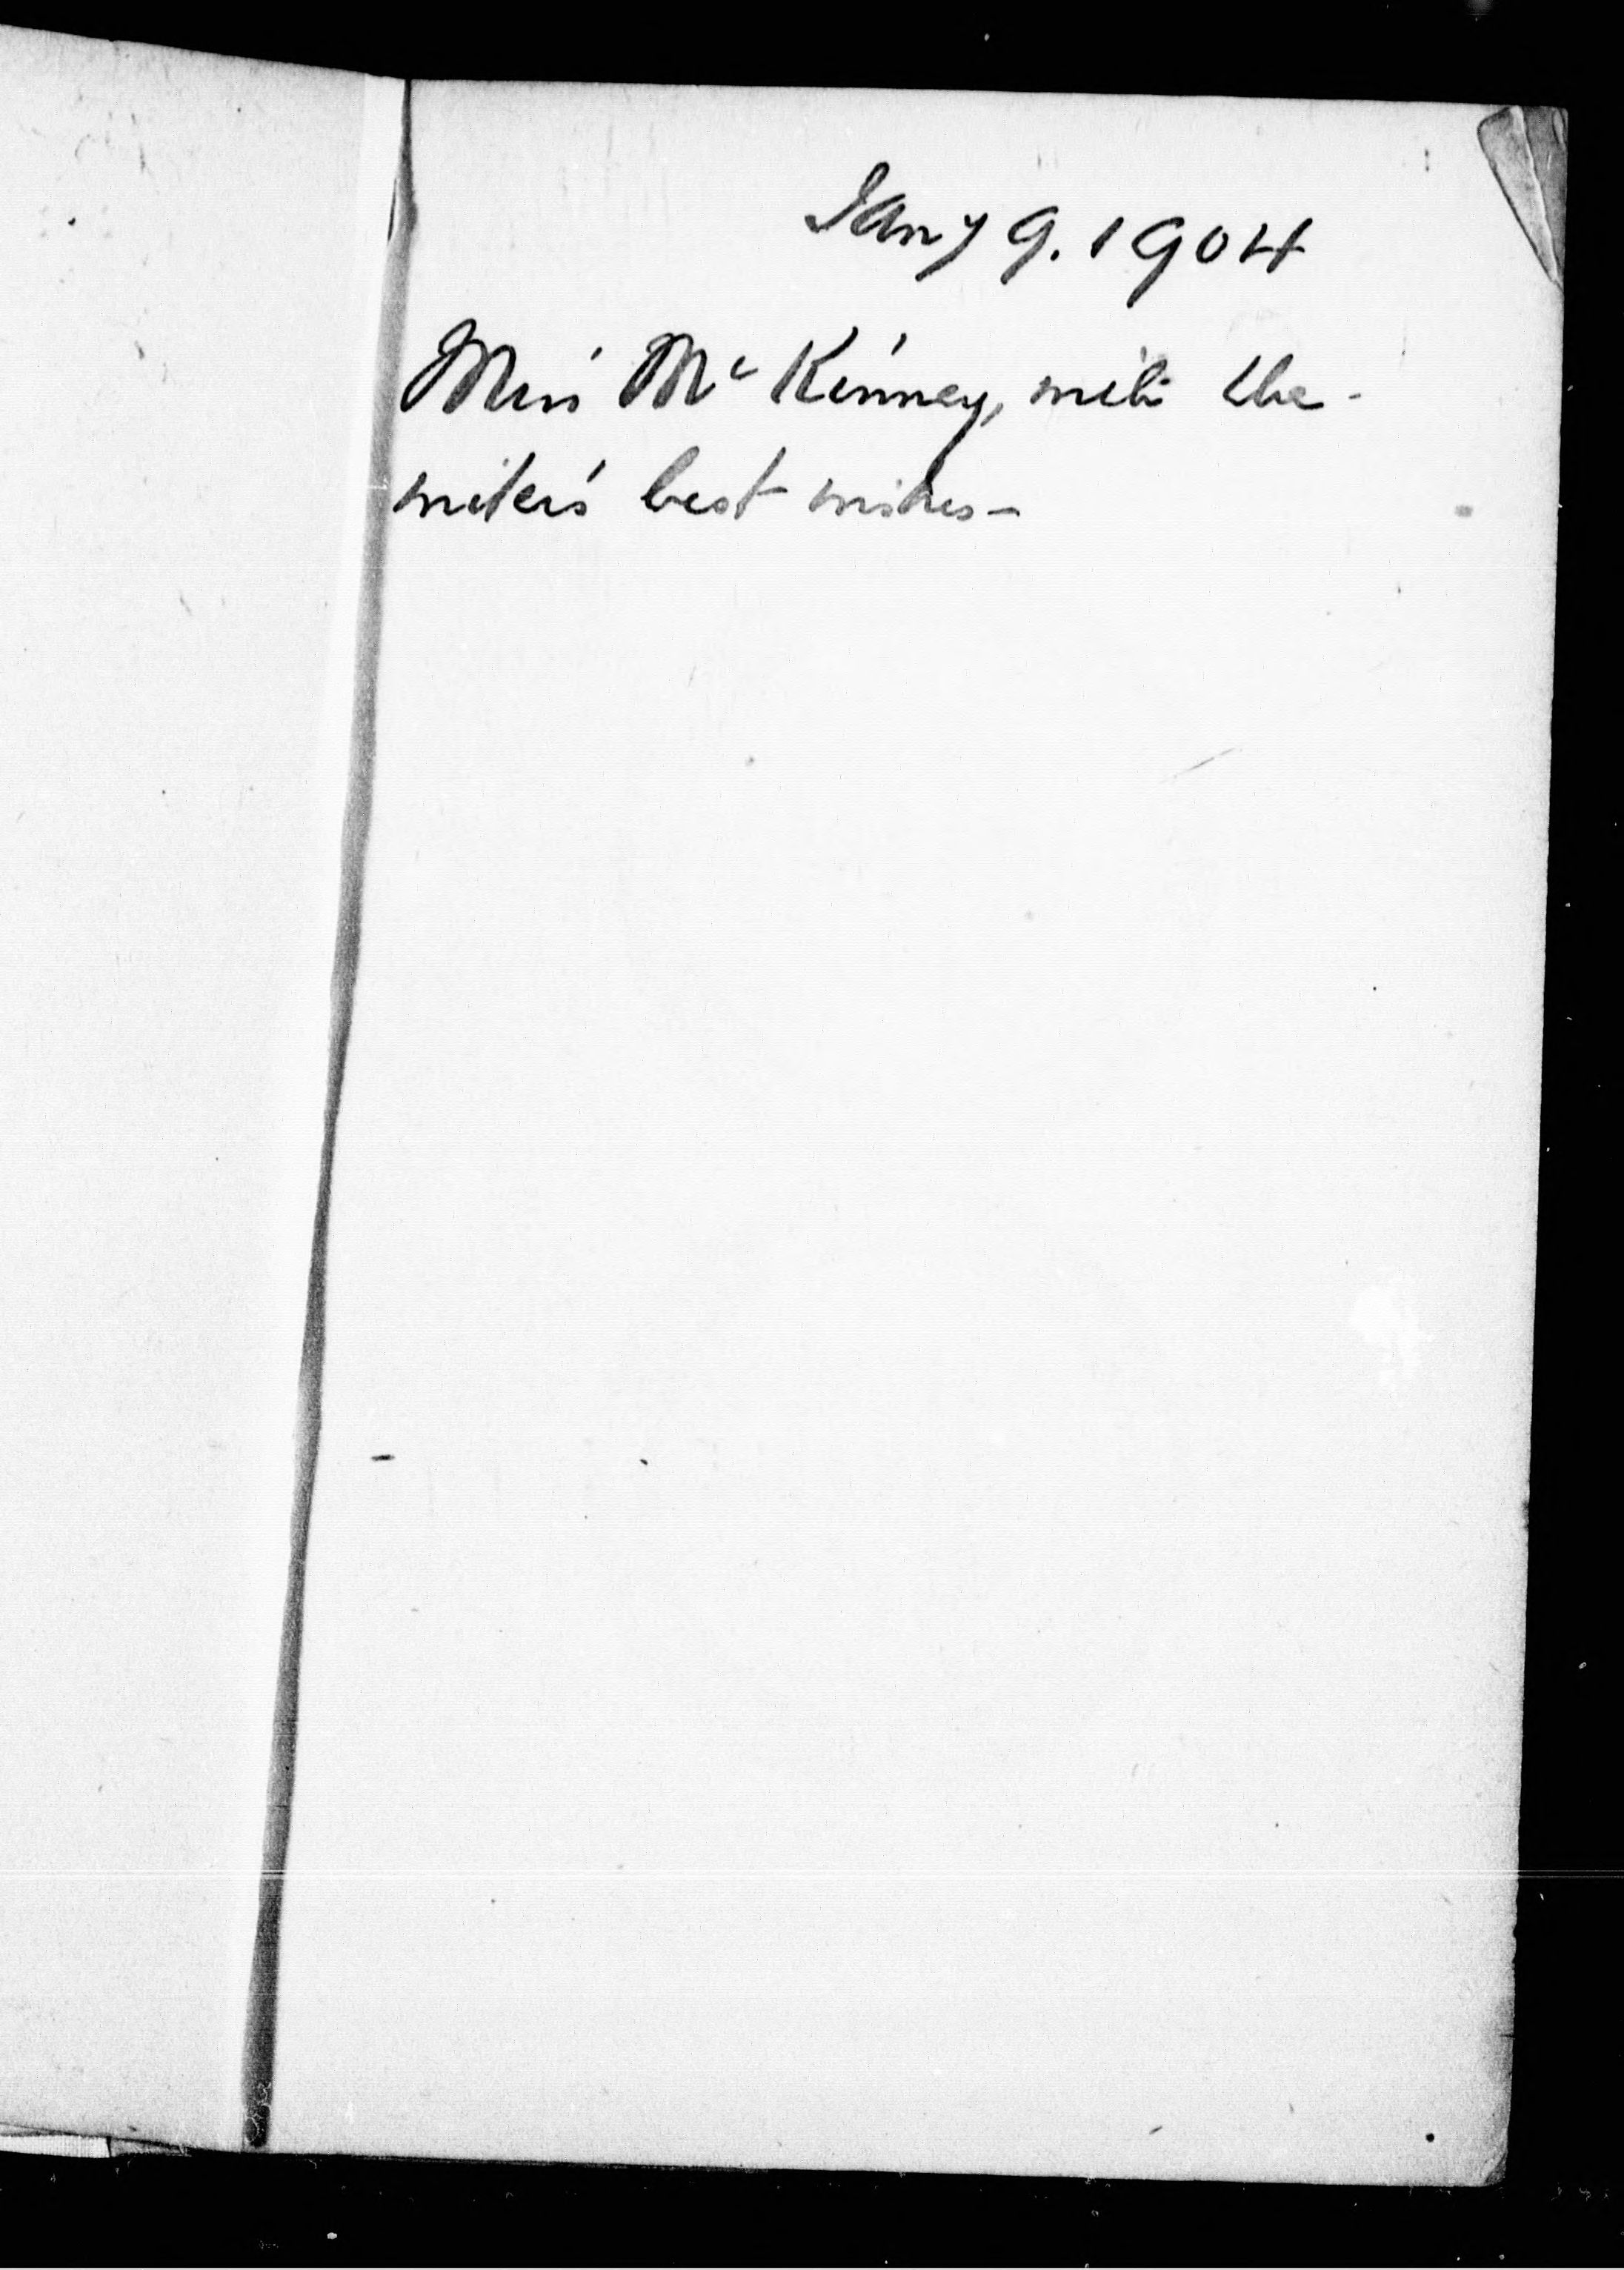 Jany 9. 1904
Miss Mc Kinney, with the
writer's best wishes -